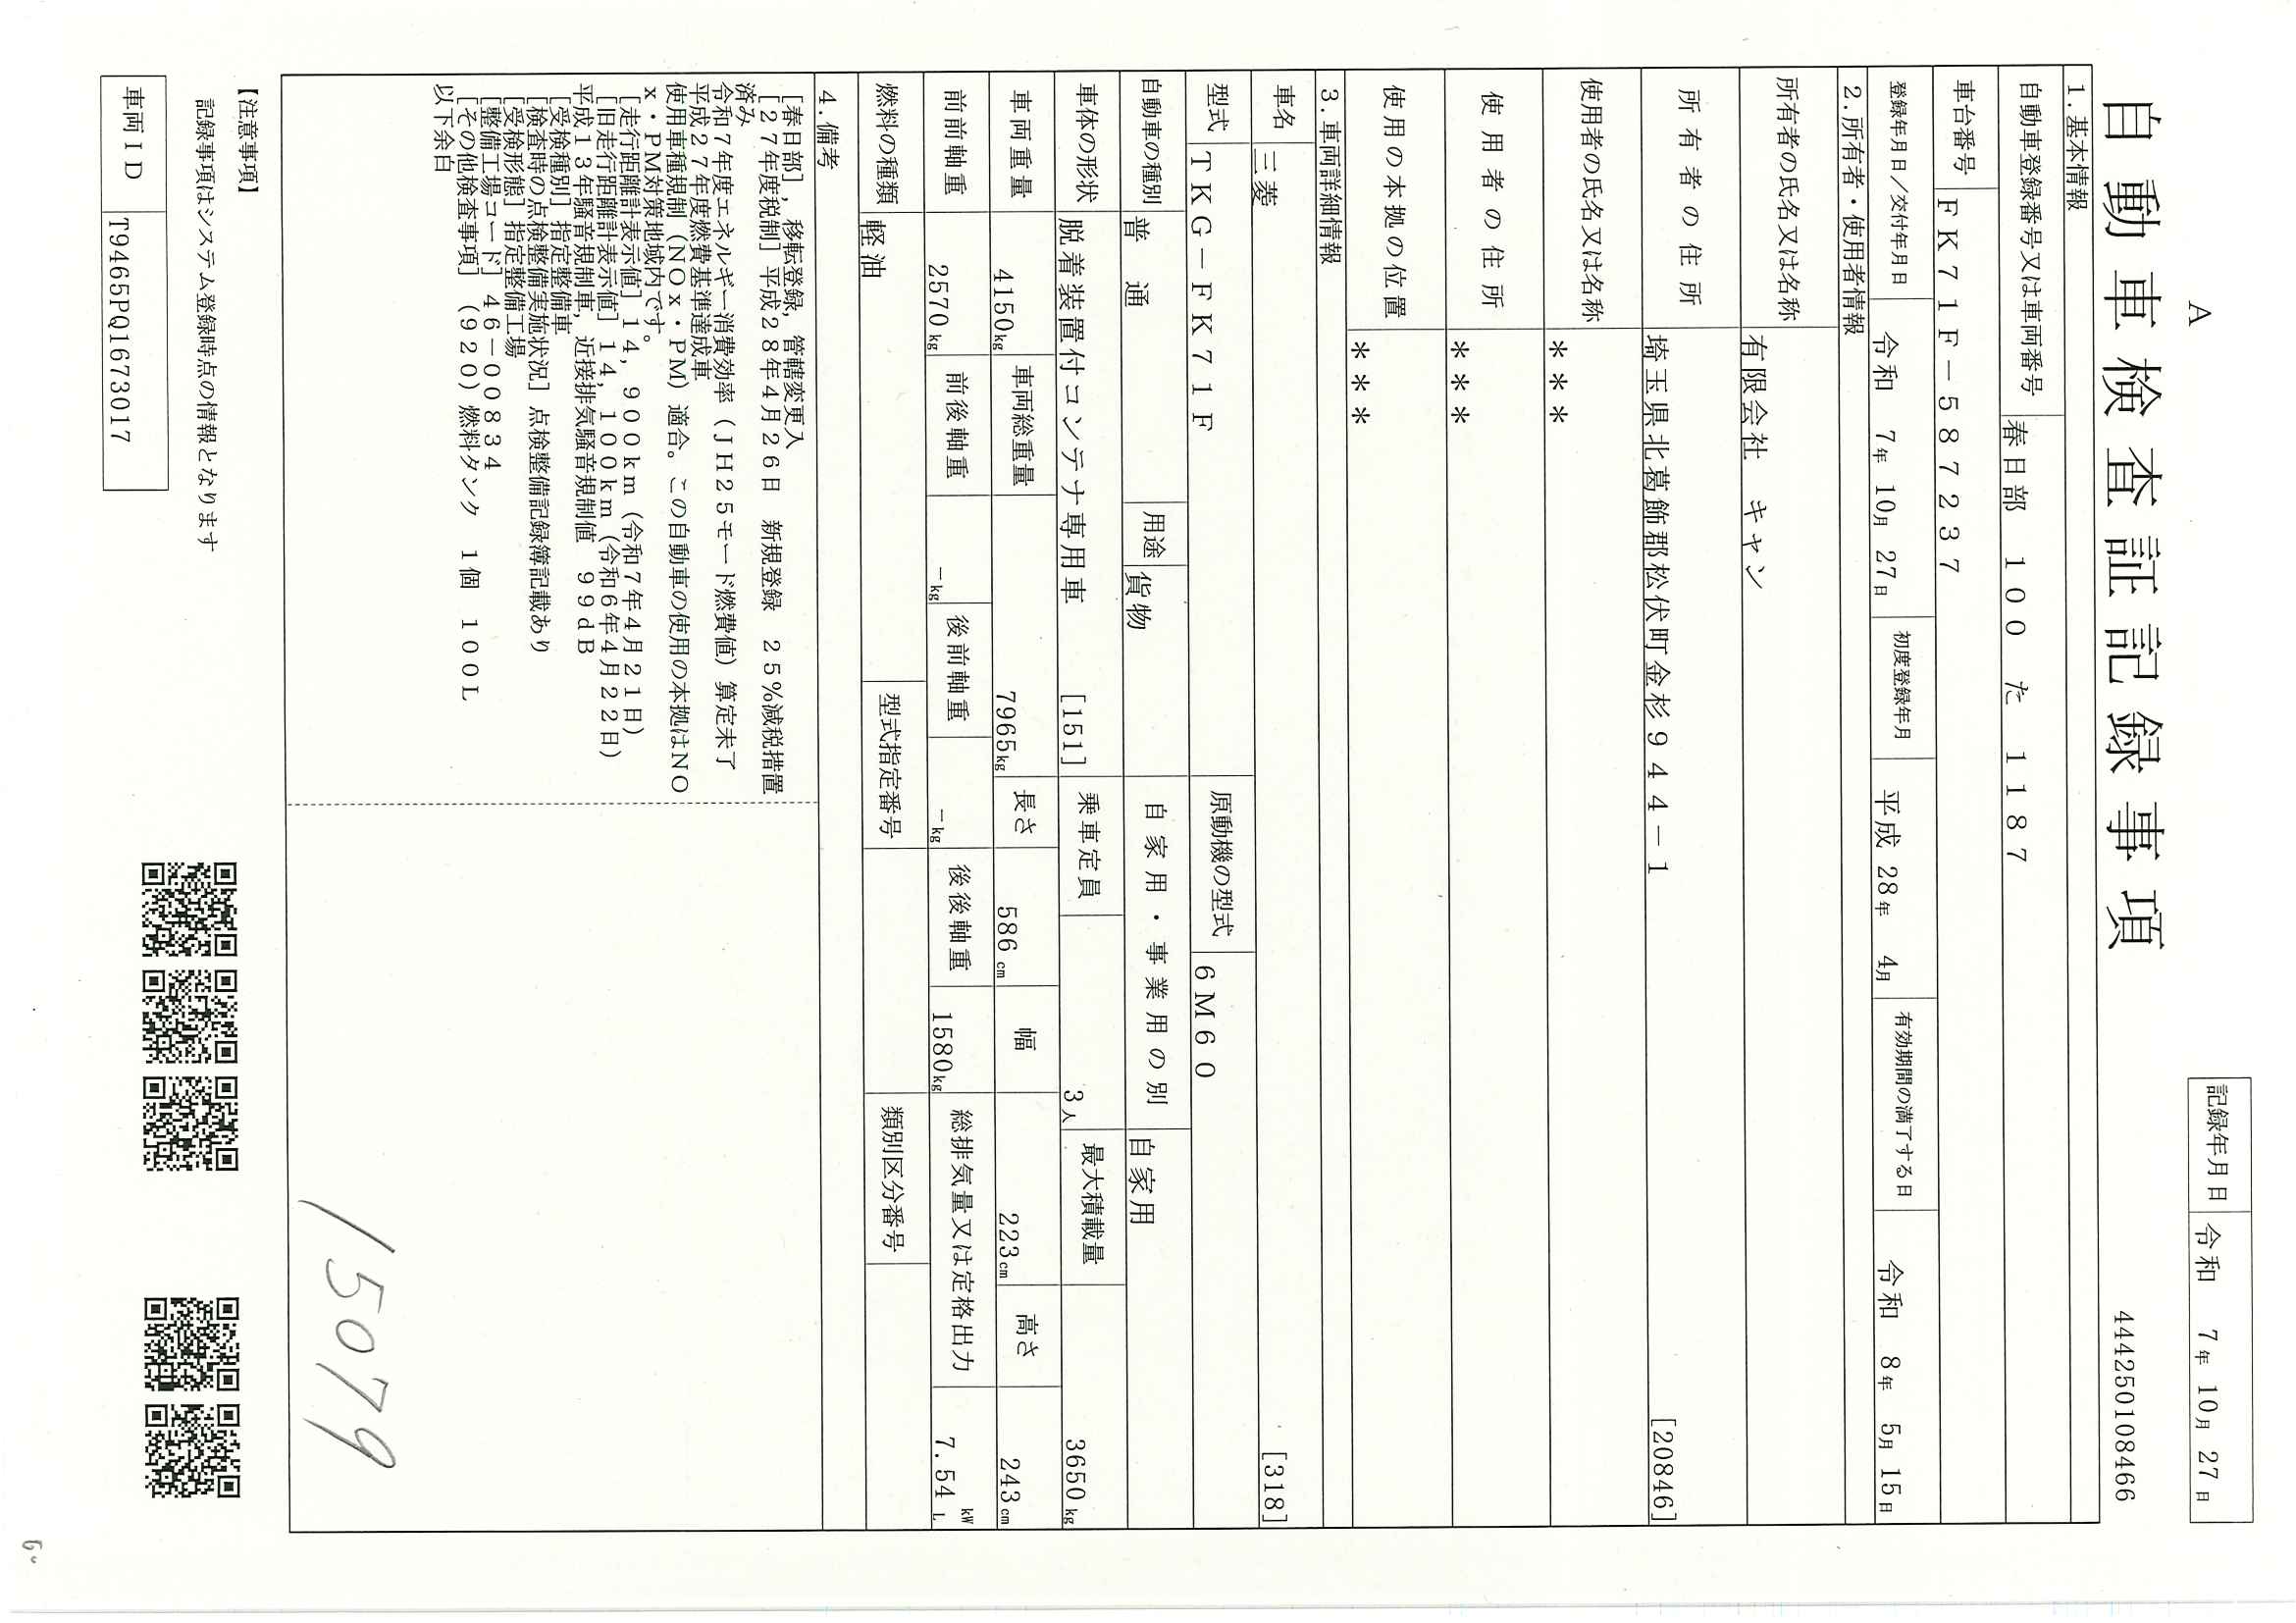 A
記録年月日 令和 7年 10月 27日
自動車検査証記録事項
444250108466
1.基本情報
自動車登録番号又は車両番号 春日部 100 た 1187
車台番号 FK71F－587237
登録年月日／交付年月日 令和 7年 10月 27日 初度登録年月 平成 28年 4月 有効期間の満了する日 令和 8年 5月 15日
2.所有者・使用者情報
所有者の氏名又は名称 有限会社 キャン
所有者の住所 埼玉県北葛飾郡松伏町金杉944－1 [20846]
使用者の氏名又は名称 ＊＊＊
使用者の住所 ＊＊＊
使用の本拠の位置 ＊＊＊
3.車両詳細情報
車名 三菱 [318]
型式 TKG－FK71F 原動機の型式 6M60
自動車の種別 普通 用途 貨物 自家用・事業用の別 自家用
車体の形状 脱着装置付コンテナ専用車 [151] 乗車定員 3人 最大積載量 3650kg
車両重量 4150kg 車両総重量 7965kg 長さ 586cm 幅 223cm 高さ 243cm
前前軸重 2570kg 前後軸重 －kg 後前軸重 －kg 後後軸重 1580kg 総排気量又は定格出力 7.54 kW L
燃料の種類 軽油 型式指定番号 類別区分番号
4.備考
[春日部], 移転登録, 管轄変更入
[27年度税制] 平成28年4月26日 新規登録 25%減税措置
済み
令和7年度エネルギー消費効率（JH25モード燃費値）算定未了
平成27年度燃費基準達成車
使用車種規制（NOx・PM）適合。この自動車の使用の本拠はNO
x・PM対策地域内です。
[走行距離計表示値] 14,900km（令和7年4月21日）
[旧走行距離計表示値] 14,100km（令和6年4月22日）
平成13年騒音規制車, 近接排気騒音規制値 99dB
[受検種別] 指定整備車
[検査時の点検整備実施状況] 点検整備記録簿記載あり
[受検形態] 指定整備工場
[整備工場コード] 46－00834
[その他検査事項] (920) 燃料タンク 1個 100L
以下余白
15079
【注意事項】
記録事項はシステム登録時点の情報となります
車両ID T9465PQ1673017